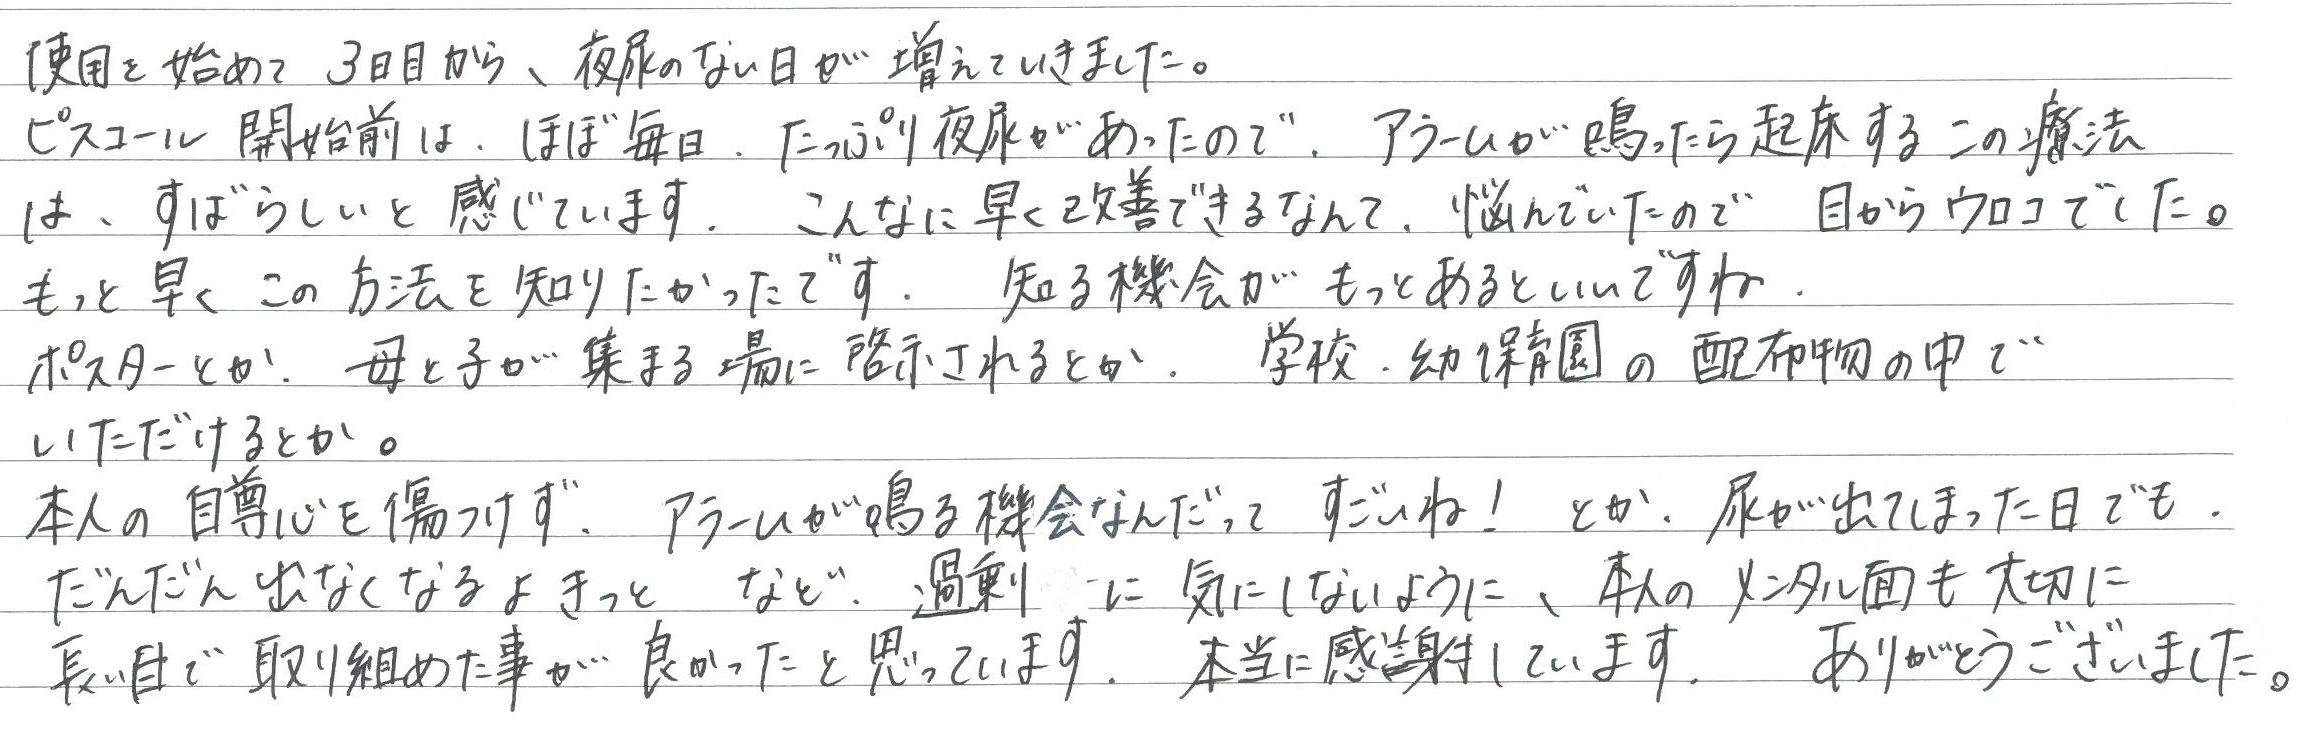 使用を始めて 3日目から、夜尿のない日が 増えていきました。
ピスコール 開始前は、ほぼ毎日、たっぷり夜尿があったので、アラームが鳴ったら起床するこの療法
は、すばらしいと感じています。こんなに早く改善できるなんて、悩んでいたので 目からウロコでした。
もっと早く この方法を知りたかったです。 知る機会が もっとあるといいですね。
ポスターとか、母と子が集まる場に啓示されるとか、 学校、幼保育園の配布物の中で
いただけるとか。
本人の自尊心を傷つけず、アラームが鳴る機会なんだって すごいね! とか、尿が出てしまった日でも、
だんだん出なくなるよ きっと など、過剰に 気にしないように、本人のメンタル面も大切に
長い目で取り組めた事が 良かったと思っています。 本当に感謝しています。 ありがとうございました。